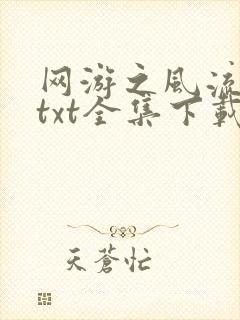 网游之风流
txt全集下载
天蒼忙